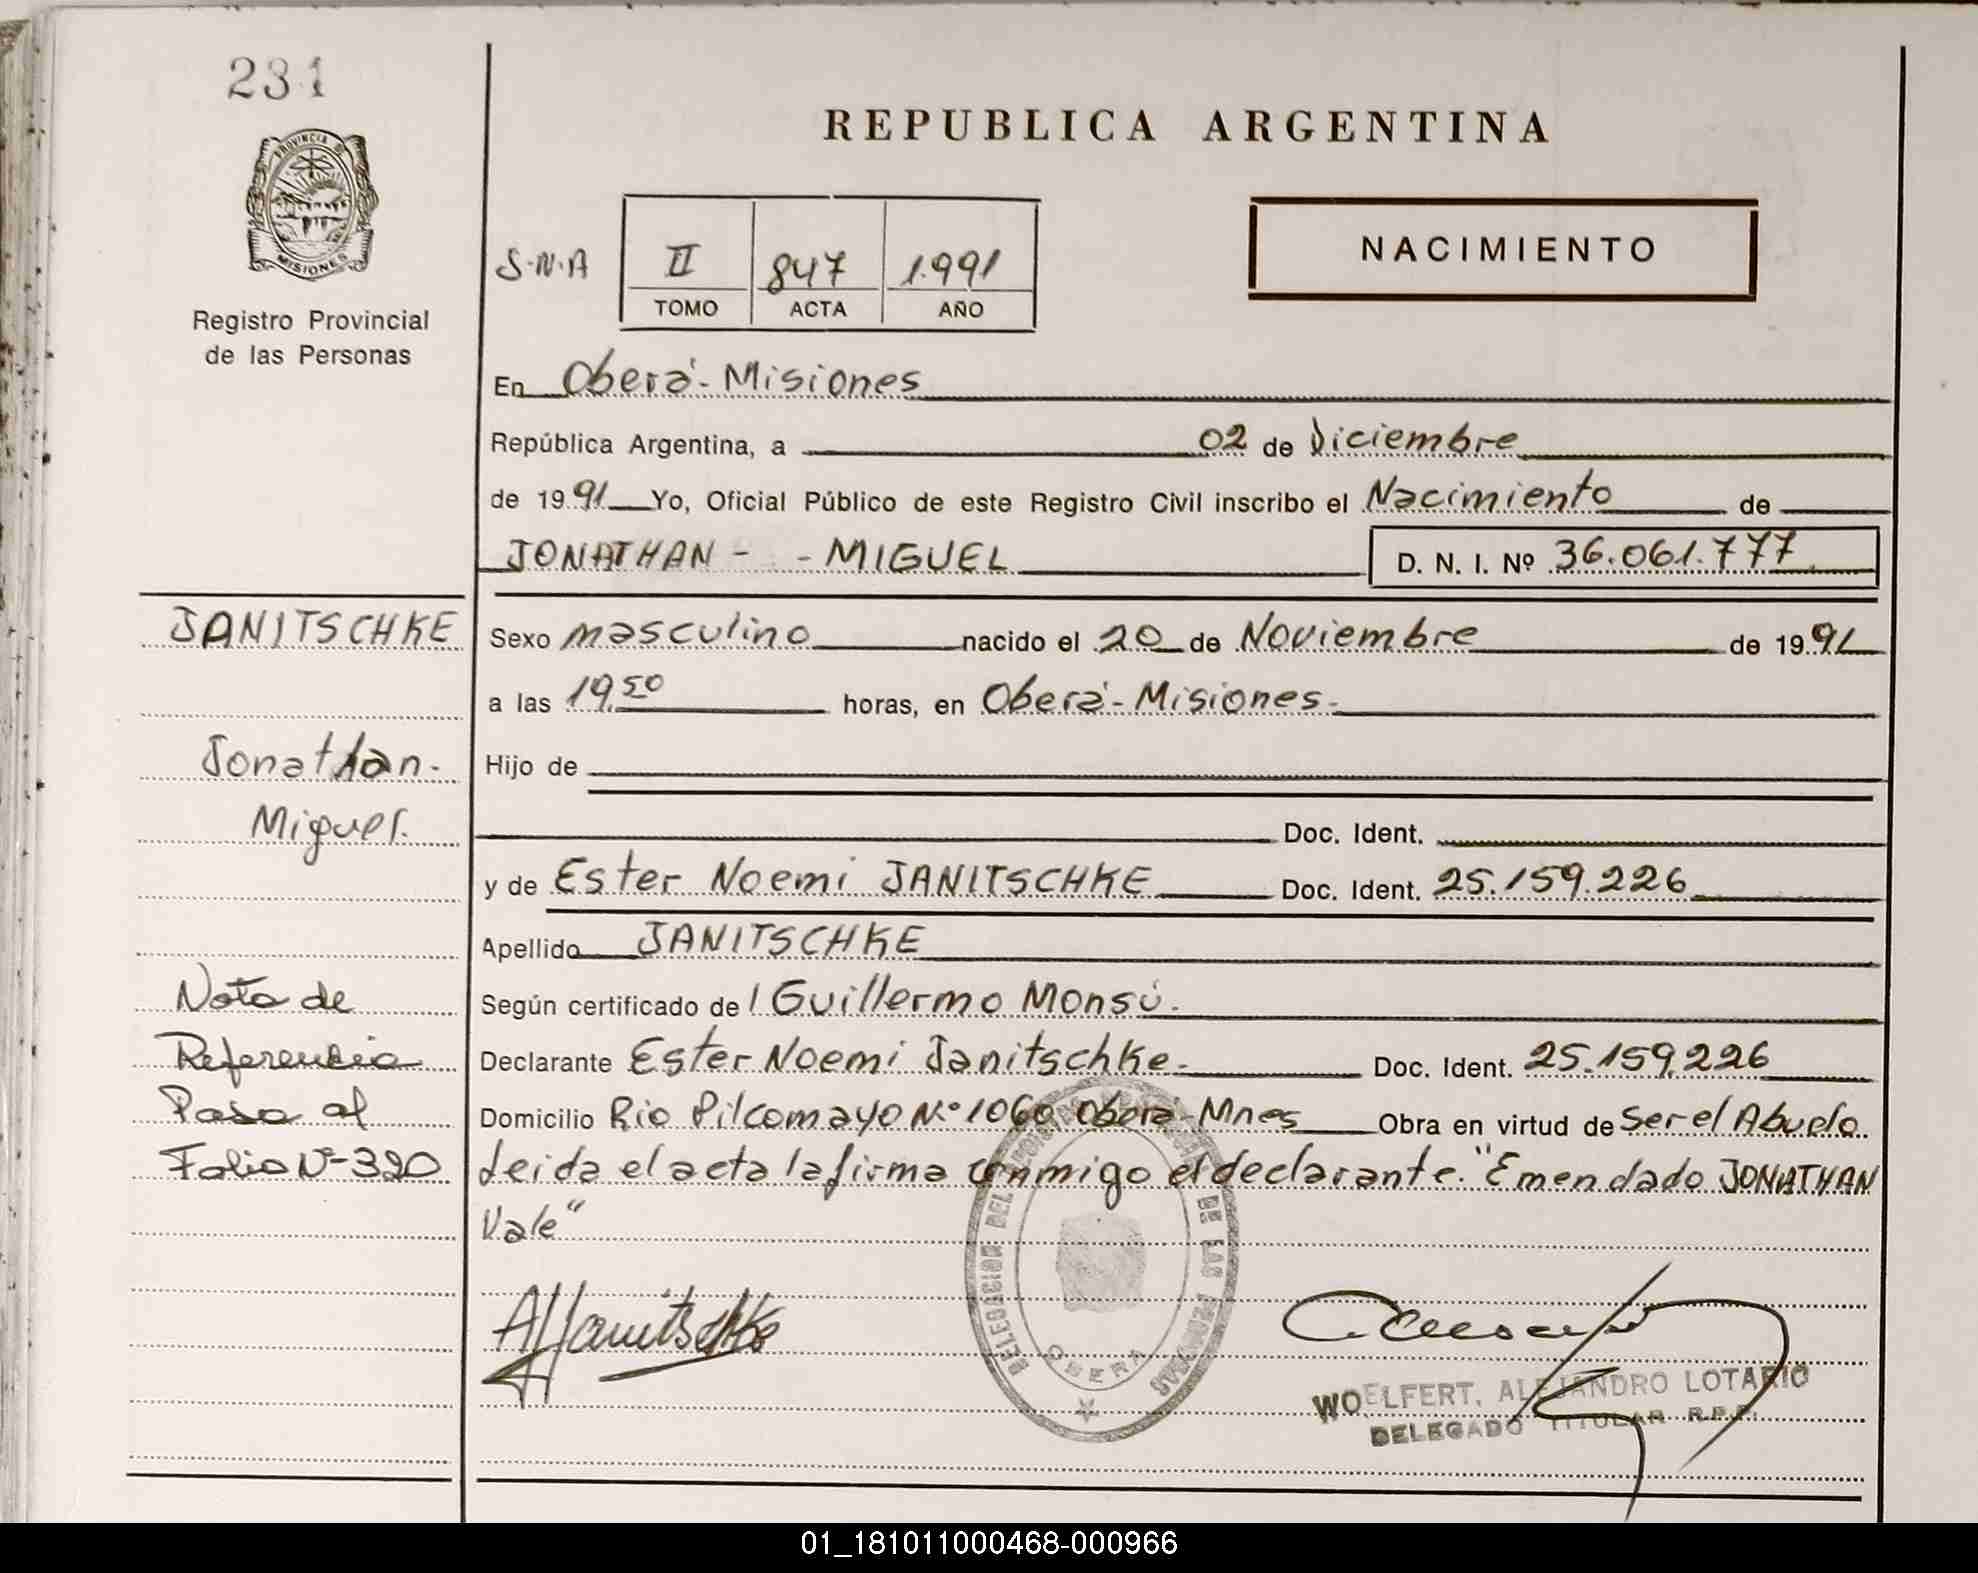 231
PROVINCIA DE
MISIONES
Registro Provincial
de las Personas
REPUBLICA ARGENTINA
S.N.A
II 847 1.991
TOMO ACTA AÑO
NACIMIENTO
En Oberá - Misiones
República Argentina, a 02 de Diciembre
de 1991 Yo, Oficial Público de este Registro Civil inscribo el Nacimiento de
JONATHAN - - MIGUEL D. N. I. Nº 36.061.777
JANITSCHKE
Sexo masculino nacido el 20 de Noviembre de 1991
a las 19,50 horas, en Oberá - Misiones -
Jonathan -
Hijo de
Miguel.
Doc. Ident.
y de Ester Noemi JANITSCHKE Doc. Ident. 25.159.226
Apellido JANITSCHKE
Nota de
Según certificado de Guillermo Monsú.
Referencia
Declarante Ester Noemi Janitschke - Doc. Ident. 25.159.226
Pasa al
Domicilio Rio Pilcomayo Nº 1060 Oberá - Mnes Obra en virtud de Ser el Abuelo
Folio Nº 320
Leida el acta la firma conmigo el declarante. "Emendado JONATHAN
Vale"
AJanitschke
DELEGACION DEL DE LAS PERSONAS
OBERA
WOELFERT, ALEJANDRO LOTARIO
DELEGADO TITULAR R.P.P.
01_181011000468-000966